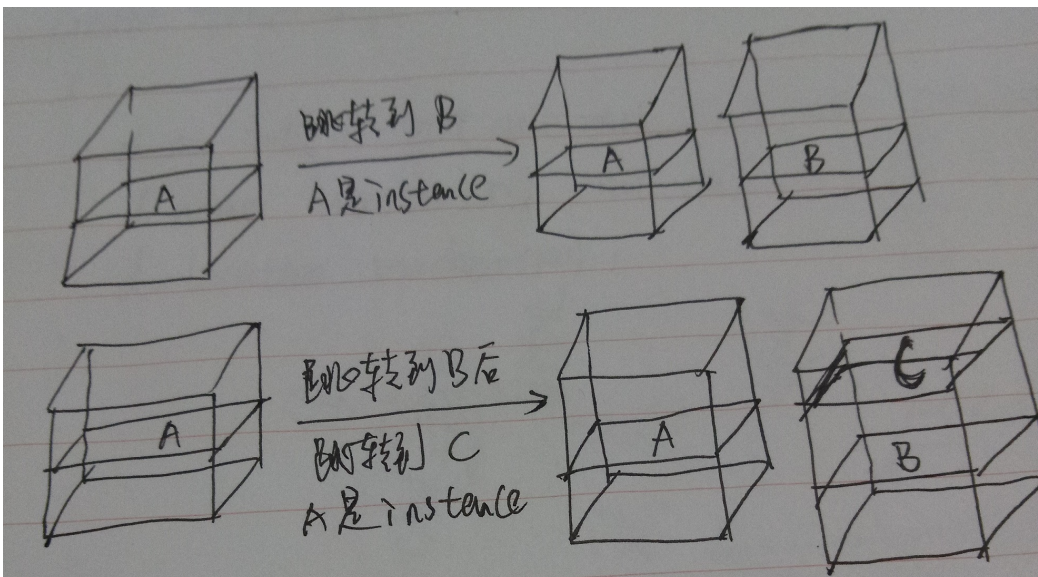 跳转到 B
A是instance
A
A
B
跳转到B后
跳转到 C
A是instance
A
A
C
B